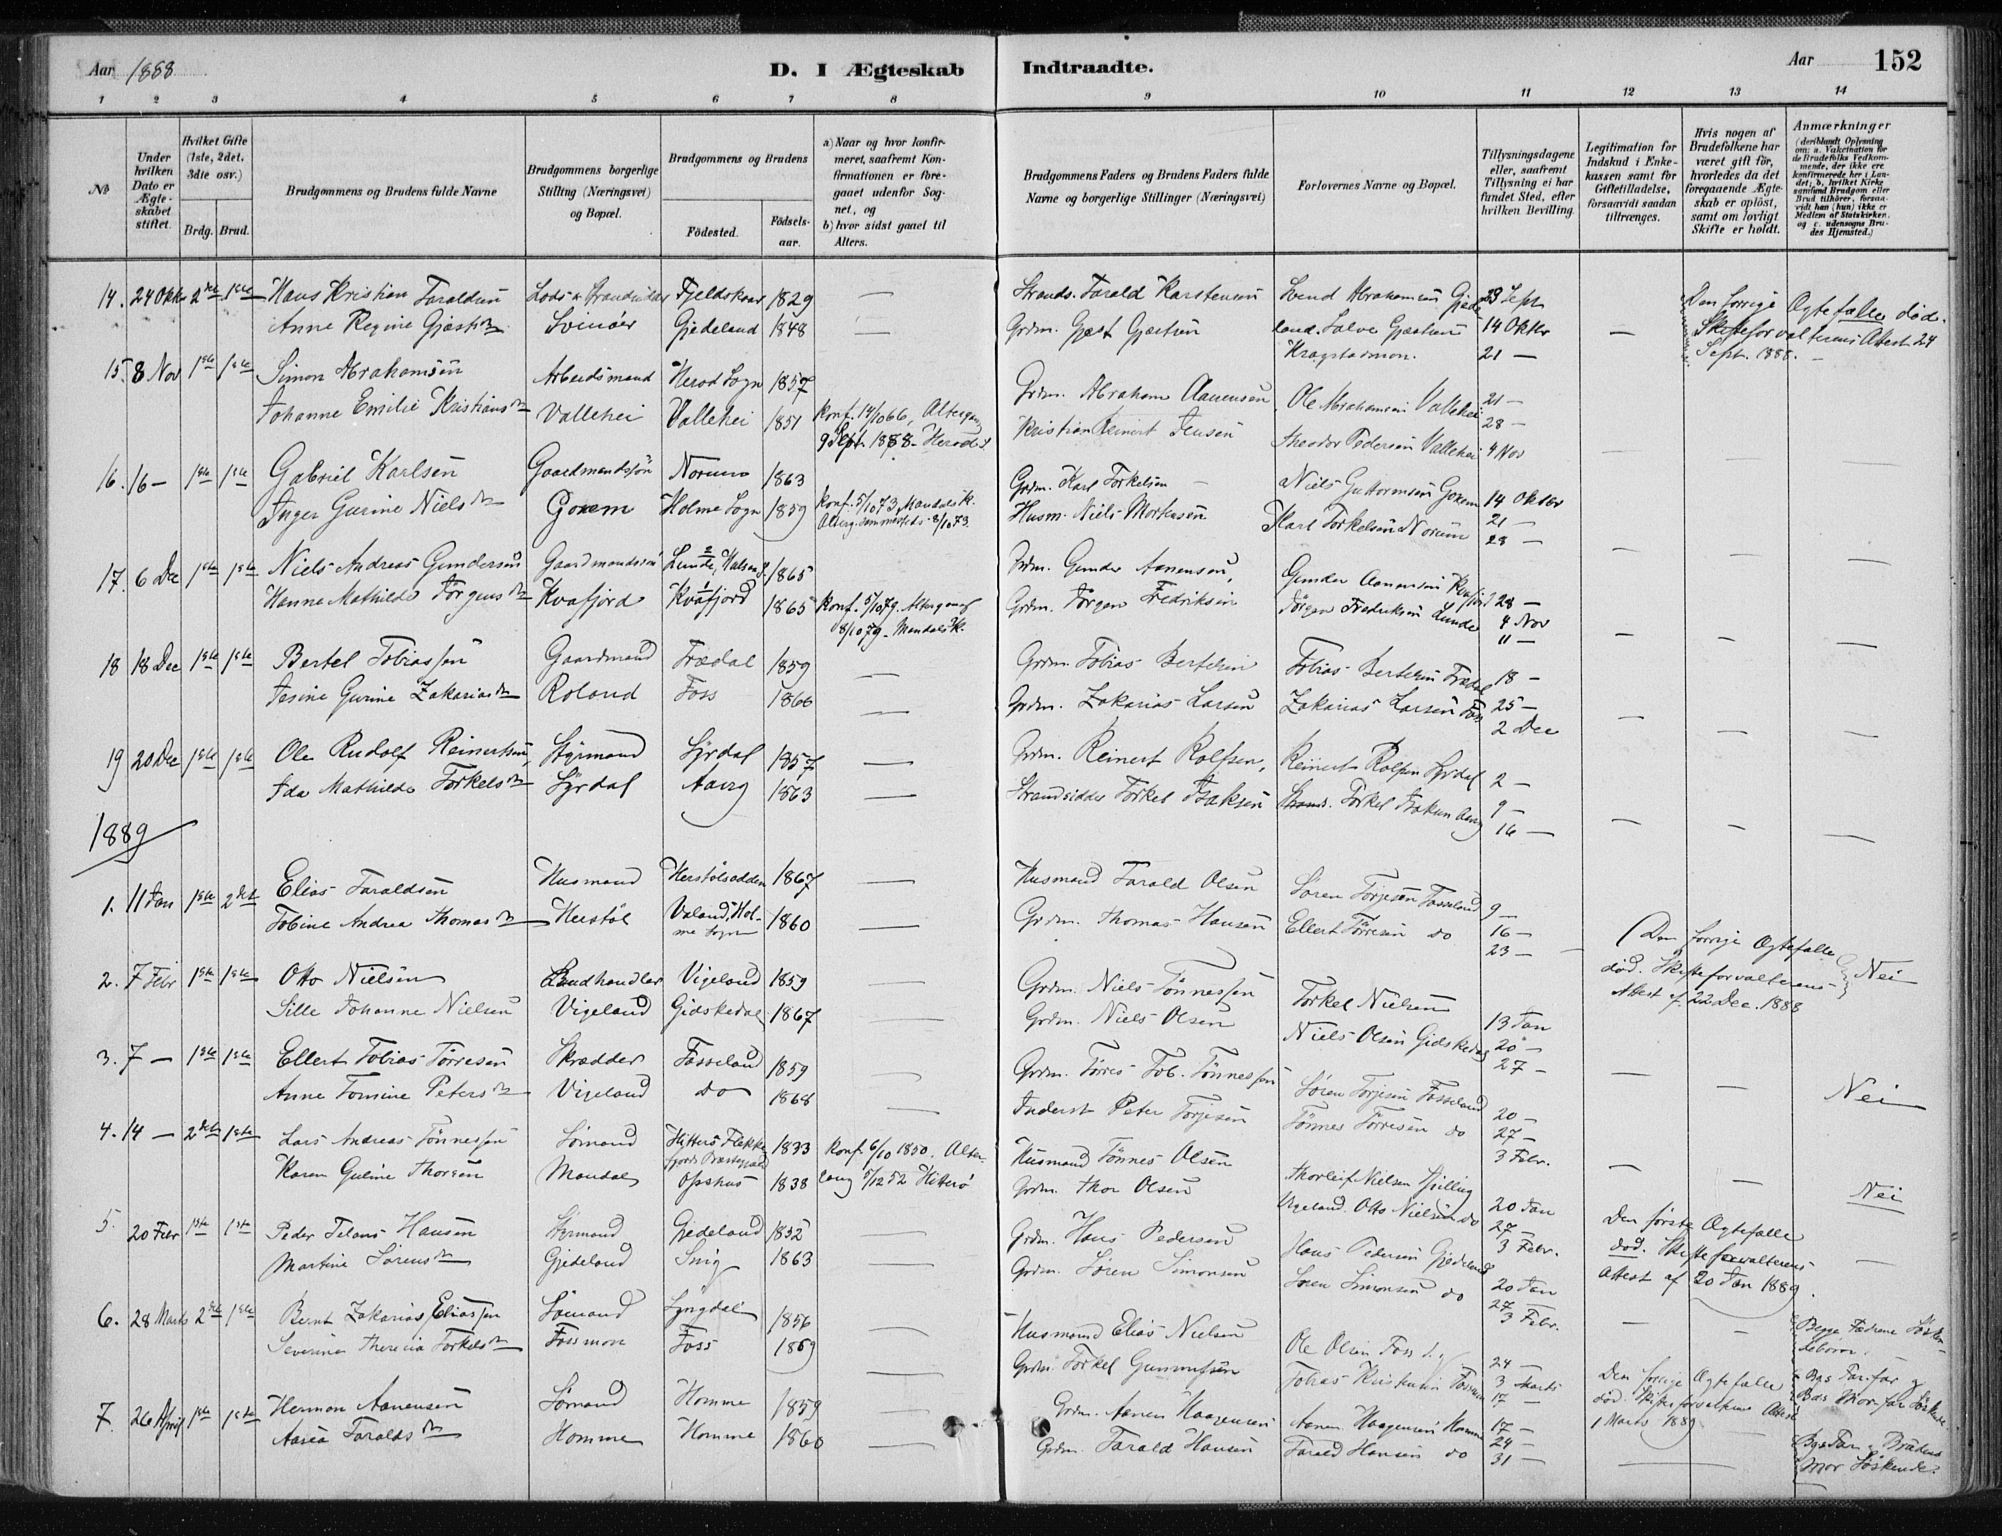 Aar 1888
D. I Ægteskab Indtraadte.
Aar 152
1 2 3 4 5 6 7 8 9 10 11 12 13 14
№
Under hvilken Dato er Ægteskabet stiftet.
Hvilket Gifte (1ste, 2det, 3die osv.)
Brdg. Brud.
Brudgommens og Brudens fulde Navne
Brudgommens borgerlige Stilling (Næringsvei) og Bopæl.
Brudgommens og Brudens
Fødested.
Fødselsaar.
a) Naar og hvor konfirmeret, saafremt Konfirmationen er foregaaet udenfor Sognet, og
b) hvor sidst gaaet til Alters.
Brudgommens Faders og Brudens Faders fulde Navne og borgerlige Stillinger (Næringsvei)
Forlovernes Navne og Bopæl.
Tillysningsdagene eller, saafremt Tillysning ei har fundet Sted, efter hvilken Bevilling.
Legitimation for Indskud i Enkekassen samt for Giftetilladelse, forsaavidt saadan tiltrænges.
Hvis nogen af Brudefolkene har været gift før, hvorledes da det foregaaende Ægteskab er opløst, samt om lovligt Skifte er holdt.
Anmærkninger (deriblandt Oplysning om: a. Vakcination for de Brudefolks Vedkommende, der ikke ere konfirmerede her i Landet; b. hvilket Kirkesamfund Brudgom eller Brud tilhører, forsaavidt han (hun) ikke er Medlem af Statskirken, og c. udensogns Brudes Hjemsted.)
14. 24 Oktr 2det 1ste Hans Kristian Taraldsen Lods & Strandsidder Fjeldskaar 1829 — Strands. Tarald Karstensen Svend Abrahamsen Gjede 23 Sept Den forrige Ægtefælle død.
Anne Regine Gjestsdtr Svinøer Gjedeland 1848 — Grdm. Gjest Gjestsen land. Salve Gjestsen 14 Oktbr — Skifteforvalterens Attest 24
Kragstadmon. 21 — Sept. 1888. —
15. 8 Nov 1ste 1ste Simon Abrahamsen Arbeidsmand Herod Sogn 1857 Grdm. Abraham Aanensen Ole Abrahamsen Vallehei 21 —
Johanne Emilie Kristiansdtr Vallehei Vallehei 1851 Konf. 14/10 66, Altergang Kristian Reinert Jensen 28 —
9 Sept. 1888. Herod S. Theodor Pedersen Vallehei 4 Nov — — —
16. 16 — 1ste 1ste Gabriel Karlsen Gaardmandssøn Norum 1863 Grdm. Karl Torkelsen — Niels Guttormsen 14 Oktbr
Inger Gurine Nielsdtr Holme Sogn 1859 Konf. 5/10 73, Mandals K. Husm. Niels Mortensen Karl Torkelsen Norum 21 —
Alterg. sammesteds 8/10 73. 28 — — — —
17. 6 Dec 1ste 1ste Niels Andreas Gundersen Gaardmandssøn Lunde, 1865 Grdm. Gunder Aanensen, Gunder Aanensen
Hanna Mathilde Jörgensdtr Kvafjord Kvafjord 1865 Konf. 5/10 79. Altergang Grdm. Jörgen Fredriksen Jörgen Fredriksen Lunde 28 —
8/10 79 – Mandals K. 4 Nov
11 — — — —
18 18 Dec 1ste 1ste Bertel Tobiassen Gaardmand Trædal 1859 — Grdm. Tobias Bertelsen Tobias Bertelsen Trædal 18 —
Jesine Gurine Zakariasdtr Roland Foss 1866 — Grdm. Zakarias Larsen Zakarias Larsen Foss 25 —
2 Dec — — —
19 20 Dec 1ste 1ste Ole Rudolf Reinertsen, Styrmand Syrdal 1857 — Grdm. Reinert Rolfsen, Reinert Rolfsen Syrdal 2 —
Ida Mathilde Torkelsdtr Syrdal Aavig 1863 — Strandsidder Torkel Isaksen Strands. Torkel Isaksen Aavig 9 —
16 — — — —
1889
1. 11 Jan 1ste 2det Elias Taraldsen Husmand Herstölsodden 1867 — Husmand Tarald Olsen Sören Torjesen Fosseland 9 —
Tobine Andrea Thomasdtr Herstöl Valand, Holme Sogn 1860 — Grdm. Thomas Hansen Ellert Törresen do 16 — Den forrige Ægtefælle
23 — død. Skifteforvalterens
Attest af 22 Dec. 1888 Nei
2. 7 Febr 1ste 1ste Otto Nielsen Landhandler Vigeland 1859 — Grdm. Niels Tönnessen Torkel Nielsen 13 Jan
Sille Johanne Nielsen Vigeland Gidskedal 1867 — Grdm. Niels Olsen Niels Olsen Gidskedal 20 —
27 — — — Nei
3. 7 — 1ste 1ste Ellert Tobias Törresen Skrædder Fosseland 1859 — Grdm. Törres Tob. Tönnessen Sören Torjesen Fosseland 20 —
Anne Tomine Petersdtr Vigeland do 1868 — Inderst Peter Torjesen Tönnes Törresen do 27 —
3 Febr. — — Nei
4. 14 — 2det 1ste Lars Andreas Tönnessen Sömand Hitterö Flekkefjords Præstegjeld 1833 Konf. 6/10 1850. Alter- Husmand Tönnes Olsen Thorleif Nielsen
Karen Guline Thorsen Mandal Opshus 1838 gang 5/12 52 Hitterö Grdm. Thor Olsen Vigeland. Otto Nielsen do 20 Jan Den første Ægtefælle
27 — død. Skifteforvalterens —
3 Febr. Attest af 20 Jan 1889.
5. 20 Febr 1ste 1ste Peder Hansen Styrmand Gjedeland — Grdm. Hans Pedersen Hans Pedersen Gjedeland 20 Jan
Martine Sörensdtr Gjedeland Snig 1863 — Grdm. Sören Simonsen Sören Simonsen do 27 —
3 Febr. — — Begge Fædrene Söskendebörn.
6. 28 Marts 2det 1ste Bernt Zakarias Eliassen Sömand Lyngdal 1856 — Husmand Elias Nielsen Ole Olsen Foss 24 —
Severine Theresia Torkelsdtr Fossmon Foss 1869 — Grdm. Torkel Gunnufsen Tobias 3 Marts Den forrige Ægtefælle
17 — død. Skifteforvalterens Attest
1 Marts 1889
7. 26 April 1ste 1ste Herman Aanensen Sömand Homme 1859 — Grdm. Aanen Haagensen Aanen Haagensen Homme 17 —
Aasa Taraldsdtr Homme Homme 1860 — Grdm. Tarald Hansen Tarald Hansen do 24 —
31 — — — Mor Söskende.